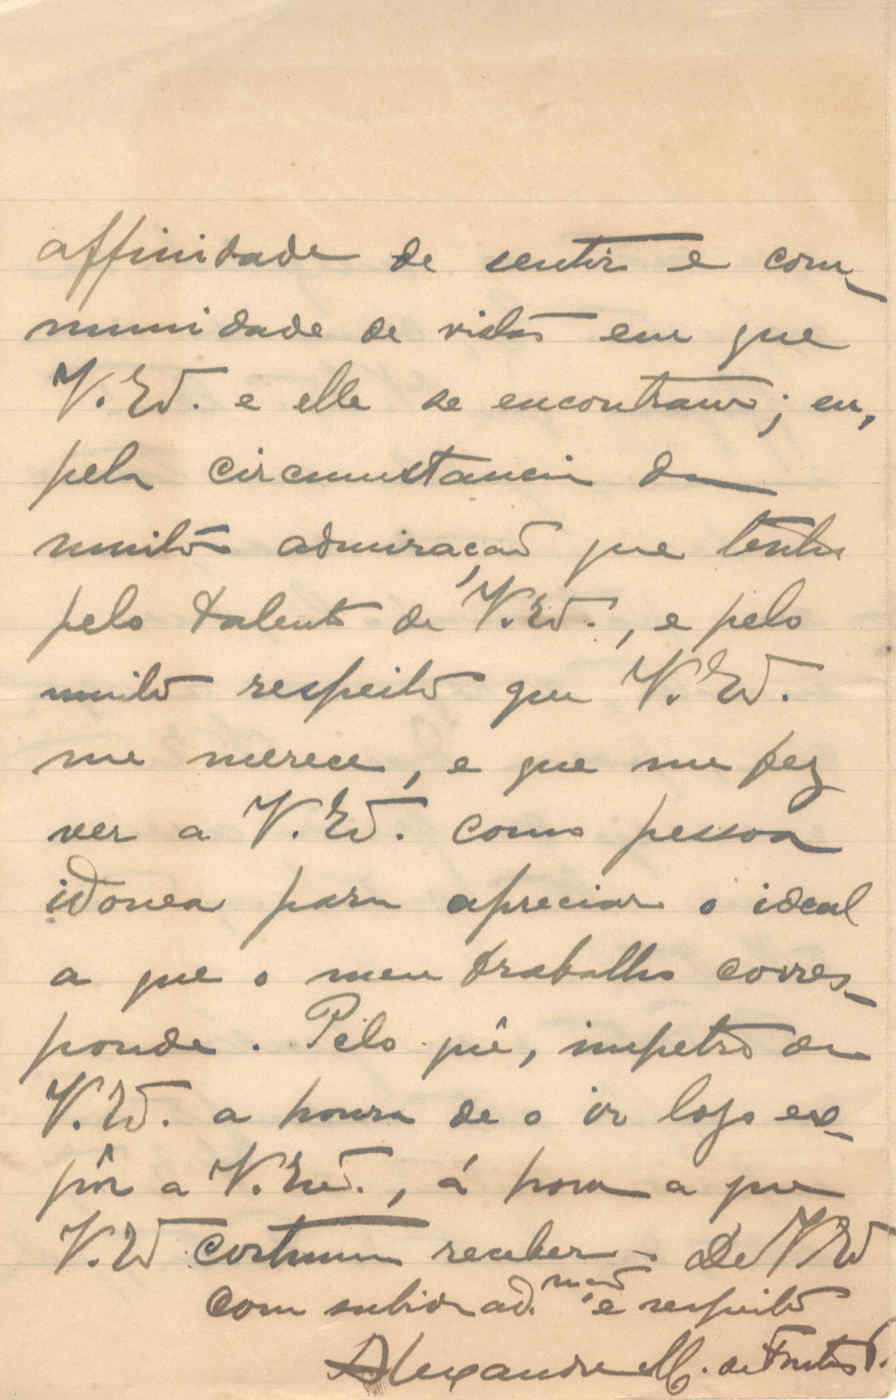 affinidade de sentir e com-
munidade de vistas em que
V. Ex.ª e elle se encontram; eu,
pela circumstancia da
muita admiração que tenho
pelo talento de V. Ex.ª, e pelo
muito respeito que V. Ex.ª
me merece, e que me fez
ver a V. Ex.ª como pessoa
idonea para apreciar o ideal
a que o meu trabalho corres-
ponde. Pelo que, impetro de
V. Ex.ª a honra de o ir logo ex-
pôr a V. Ex.ª, á hora a que
V. Ex.ª costuma receber - De V Ex.ª
com subida ad.mção e respeito
Alexandre M. de Fontes